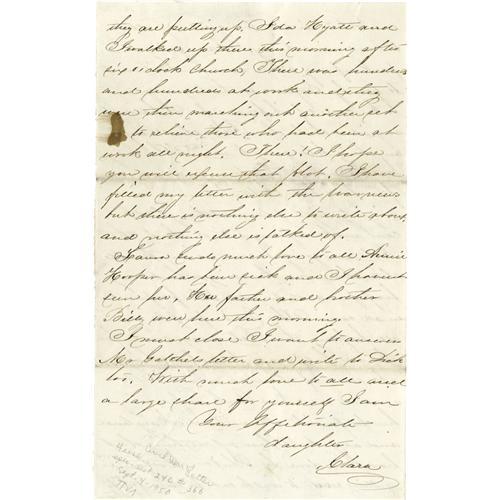 they are putting up. Ida Hyatt and
I walked up there this morning after
six o'clock church, There was hundreds
and hundreds at work and they
were then marching out another set
to relieve those who had been at
work all night. There! I hope
you will excuse that blot. I have
filled my letter with the war news
but there is nothing else to write about
and nothing else is talked of.
Laura sends much love to all Annie
Hooper has been sick and I havent
seen her, Her father and brother
Billy were here this morning.
I must close I want to answer
Mr Getchels letter and write to Dick
too. With much love to all and
a large share for yourself I am
Your Affetionate
daughter
Clara
Civil War Letter
Sept. 4, 1950